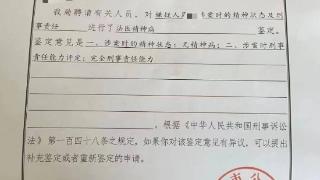 我局聘请有关人员，对嫌疑人『 涉案时的精神状态及刑
事责任 进行了法医精神病 鉴定。
鉴定意见是一、涉案时的精神状态：无精神病；二、涉案时刑事
责任能力评定：完全刑事责任能力
，根据《中华人民共和国刑事诉讼
法》第一百四十八条之规定，如果你对该鉴定意见有异议，可以提出
补充鉴定或者重新鉴定的申请。